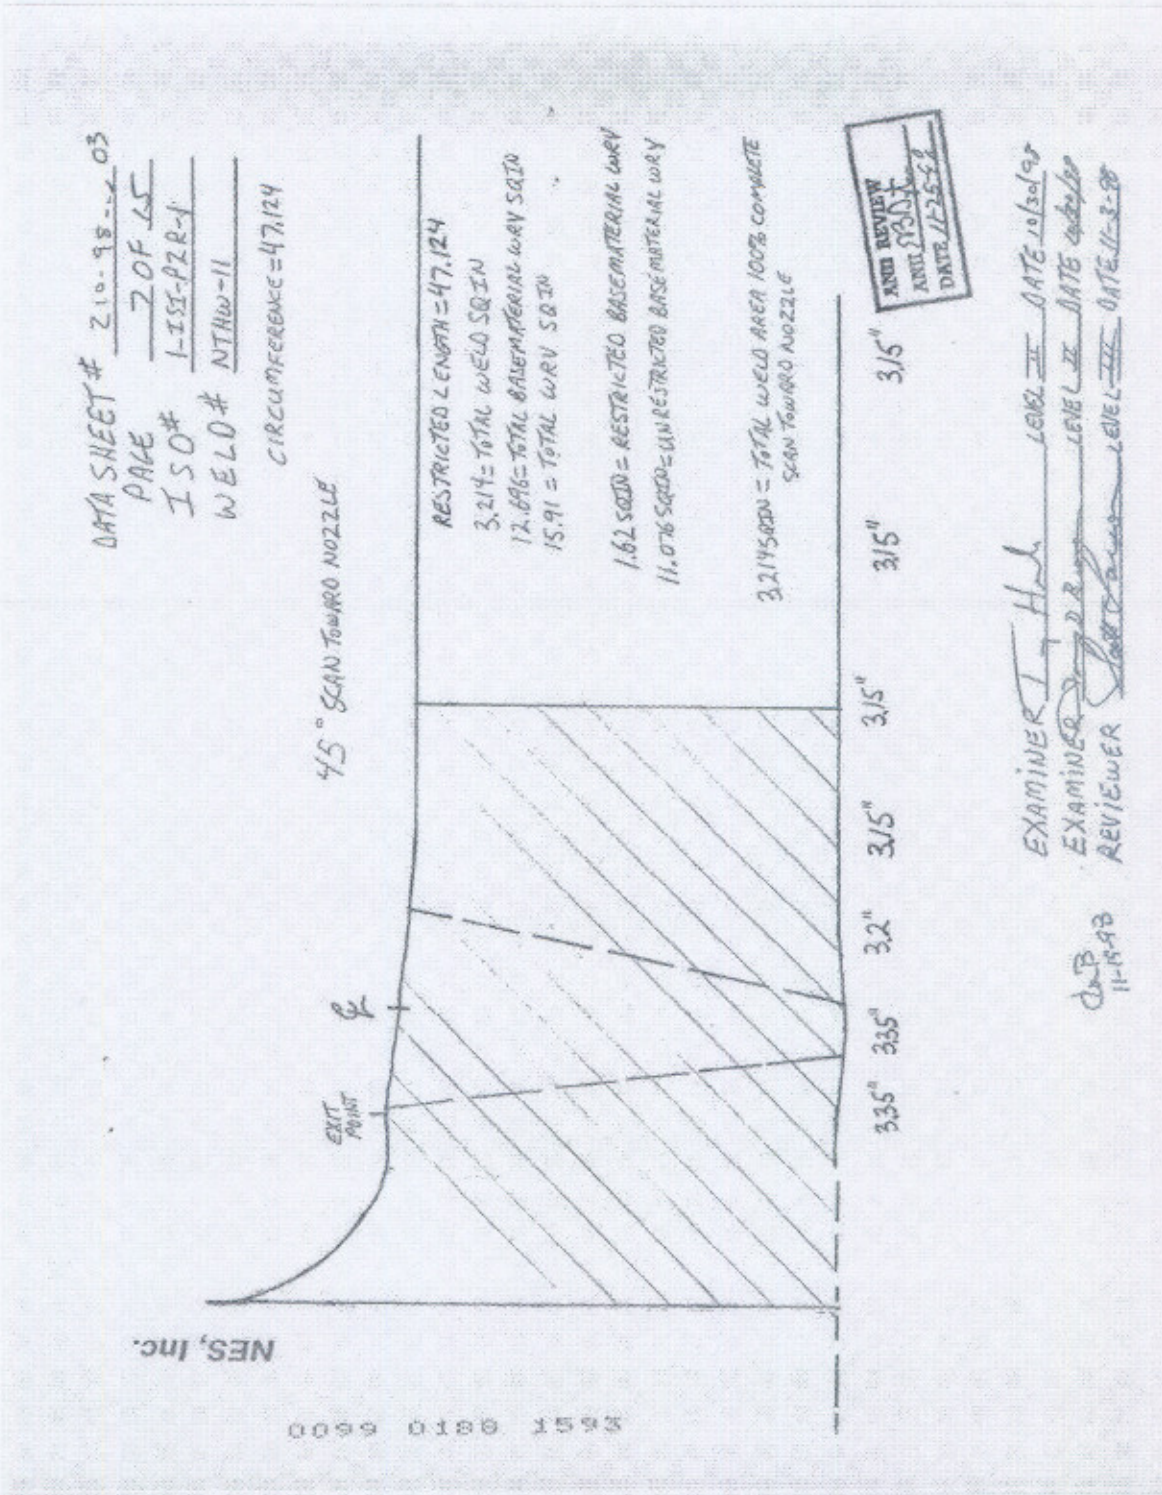 DATA SHEET # 210-98-
03
PAGE 2 OF 15
ISO# 1-ISI-P2R-1
WELD# NTHW-11
CIRCUMFERENCE = 47.124
45° SCAN TOWARD NOZZLE
RESTRICTED LENGTH = 47.124
3.214 = TOTAL WELD SQ IN
12.696 = TOTAL BASEMATERIAL WRV SQ IN
15.91 = TOTAL WRV SQ IN
1.62 SQ IN = RESTRICTED BASEMATERIAL WRV
11.076 SQ IN = UNRESTRICTED BASEMATERIAL WRV
3.214 SQ IN = TOTAL WELD AREA 100% COMPLETE
SCAN TOWARD NOZZLE
EXIT
POINT
℄
3.35" 3.35" 3.2" 3.15" 3.15" 3.15" 3.15"
ANII REVIEW
ANII
DATE 11-25-98
EXAMINER LEVEL II DATE 10/30/98
EXAMINER LEVEL II DATE
REVIEWER LEVEL III DATE 11-3-98
NES, Inc.
0099 0180 1593